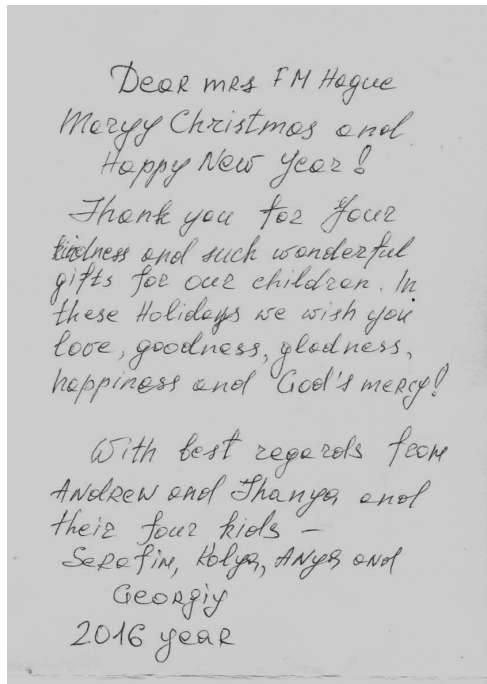 Dear mrs FM Hague
Meryy Christmas and
Happy New Year!
Thank you for Your
kindness and such wonderful
gifts for our children. In
these Holidays we wish you
love, goodness, gladness,
happiness and God's mercy!
With best regards from
Andrew and Thanya and
their four kids –
Serafim, Kolya, Anya and
Georgiy
2016 year